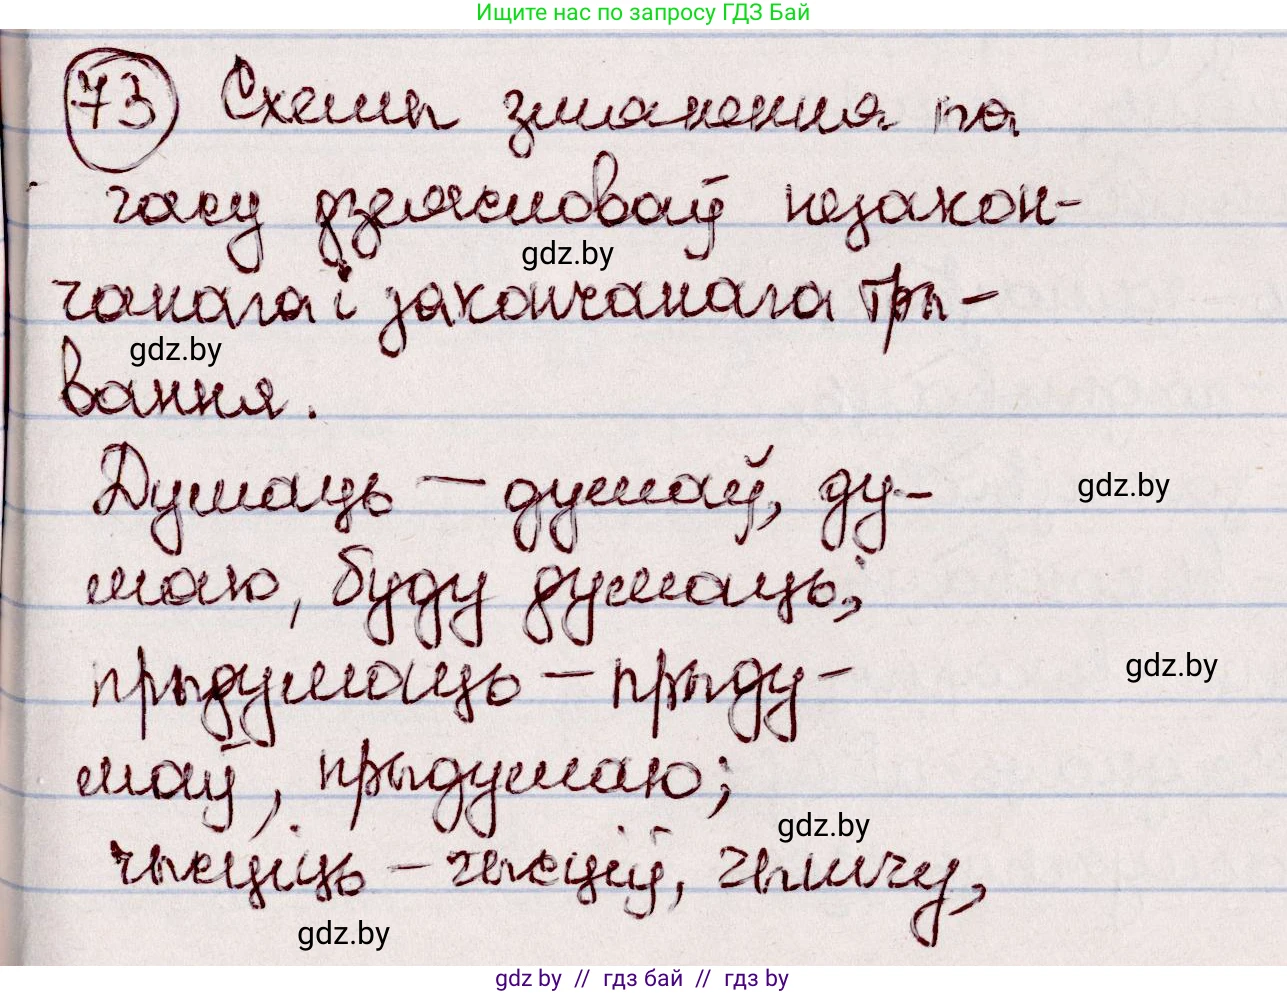 Ищите нас по запросу ГДЗ Бай
73 Схемы змянення па
часу дзеясловаў незакон-
gdz.by
чанага і закончанага тры-
gdz.by
вання.
Думаць — думаў, ду-
gdz.by
маю, буду думаць;
прыдумаць — прыду-
gdz.by
маў, прыдумаю;
gdz.by
чысціць — чысціў, чышчу,
gdz.by
gdz by // гдз бай // гдз by